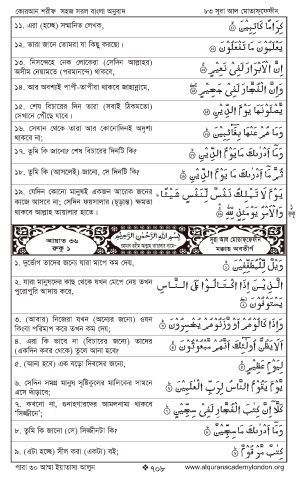 কোরআন শরীফ সহজ সরল বাংলা অনুবাদ
৮৩ সূরা আল মোতাফ্ফেফীন
১১. এরা (হচ্ছে) সম্মানিত লেখক,
كِرَامًا كَاتِبِيْنَ
১২. তারা জানে তোমরা যা কিছু করছো।
يَعْلَمُوْنَ مَا تَفْعَلُوْنَ
১৩. নিসন্দেহে নেক লোকেরা (সেদিন আল্লাহর)
অসীম নেয়ামতে (পরমানন্দে) থাকবে,
اِنَّ الْاَبْرَارَ لَفِيْ نَعِيْمٍ
১৪. আর অবশ্যই পাপী-তাপীরা থাকবে জাহান্নামে,
وَاِنَّ الْفُجَّارَ لَفِيْ جَحِيْمٍ
১৫. শেষ বিচারের দিন তারা (সবাই ঠিকমতো)
সেখানে পৌঁছে যাবে।
يَّصْلَوْنَهَا يَوْمَ الدِّيْنِ
১৬. সেখান থেকে তারা আর কোনোদিনই অদৃশ্য
থাকবে না;
وَمَا هُمْ عَنْهَا بِغَآئِبِيْنَ
১৭. তুমি কি জানো শেষ বিচারের দিনটি কি?
وَمَآ اَدْرٰىكَ مَا يَوْمُ الدِّيْنِ
১৮. তুমি কি (আসলেই) জানো, সে দিনটি কি?
ثُمَّ مَآ اَدْرٰىكَ مَا يَوْمُ الدِّيْنِ
১৯. যেদিন কোনো মানুষই একজন আরেক জনের
কাজে আসবে না; সেদিন ফয়সালার (চূড়ান্ত) ক্ষমতা
থাকবে আল্লাহ তায়ালার হাতে।
يَوْمَ لَا تَمْلِكُ نَفْسٌ لِّنَفْسٍ شَيْئًا
وَالْاَمْرُ يَوْمَئِذٍ لِّلّٰهِ
আয়াত ৩৬
রুকু ১
بِسْمِ اللّٰهِ الرَّحْمٰنِ الرَّحِيْمِ
সূরা আল মোতাফ্ফেফীন
মক্কায় অবতীর্ণ
১. দুর্ভোগ তাদের জন্যে যারা মাপে কম দেয়,
وَيْلٌ لِّلْمُطَفِّفِيْنَ
২. যারা মানুষদের কাছ থেকে যখন মেপে নেয় তখন
পুরোপুরি আদায় করে,
الَّذِيْنَ اِذَا اكْتَالُوْا عَلَى النَّاسِ
يَسْتَوْفُوْنَ
৩. (আবার) নিজেরা যখন (অন্যের জন্যে) ওযন
কিংবা পরিমাপ করে তখন কম দেয়;
وَاِذَا كَالُوْهُمْ اَوْ وَّزَنُوْهُمْ يُخْسِرُوْنَ
৪. এরা কি ভাবে না (বিচারের জন্যে) তাদের
(একদিন কবর থেকে) তুলে আনা হবে?
اَلَا يَظُنُّ اُولٰٓئِكَ اَنَّهُمْ مَّبْعُوْثُوْنَ
৫. (আনা হবে) এক বড়ো দিবসের জন্যে,
لِيَوْمٍ عَظِيْمٍ
৬. সেদিন সমগ্র মানুষ সৃষ্টিকুলের মালিকের সামনে
এসে দাঁড়াবে;
يَّوْمَ يَقُوْمُ النَّاسُ لِرَبِّ الْعٰلَمِيْنَ
৭. কখনো না, গুনাহগারদের আমলনামা থাকবে
'সিজ্জীনে';
كَلَّآ اِنَّ كِتٰبَ الْفُجَّارِ لَفِيْ سِجِّيْنٍ
৮. তুমি কি জানো (সে) সিজ্জীনটা কি?
وَمَآ اَدْرٰىكَ مَا سِجِّيْنٌ
৯. (এটা হচ্ছে) সীল করা (একটা) বই;
كِتٰبٌ مَّرْقُوْمٌ
পারা ৩০ আম্মা ইয়াতাসা আলূন
৭০৮
www.alquranacademylondon.org